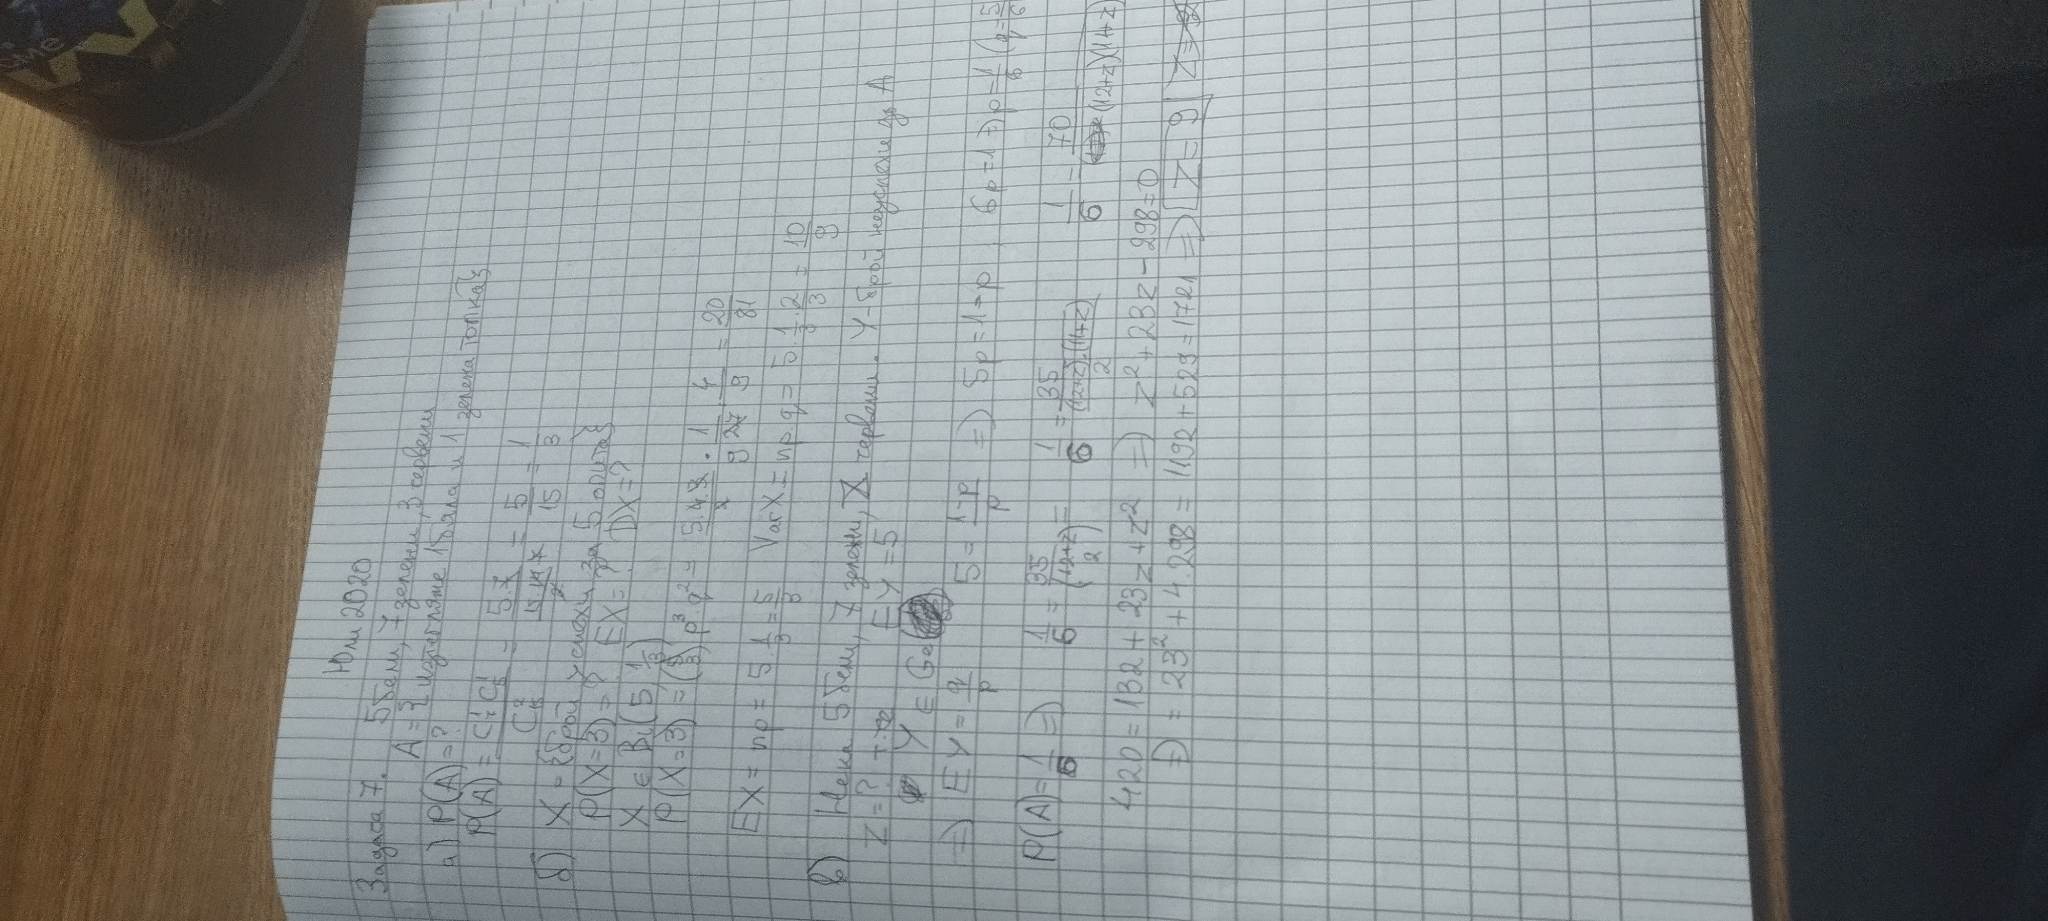 Юли 2020
Задача 7. 5 бели, 7 зелени, 3 червени
A = {изтегляне 1 бяла и 1 зелена топка}
а) P(A) = ?
P(A) = C₅¹C₇¹ / C₁₅² = 5.7 / (15.14/2) = 5/15 = 1/3
б) X = {брой успехи за 5 опита}
P(X=3) = ? EX = ? DX = ?
X ∈ Bi(5, 1/3)
P(X=3) = (5 3) p³.q² = 5.4.3/2 . 1/27 . 4/9 = 20/81
EX = np = 5.1/3 = 5/3 VarX = np.q = 5.1/3.2/3 = 10/9
в) Нека 5 бели, 7 зелени, Z червени. Y - брой неуспехи до A
Z = ? EY = 5
Y ∈ Ge
=> EY = q/p 5 = 1-p/p => 5p = 1-p 6p = 1 => p = 1/6 (q = 5/6
P(A) = 1/6 => 1/6 = 35/(12+z 2) = 1/6 = 35/((12+z).(11+z)/2) 1/6 = 70/(12+z)(11+z)
420 = 132 + 23z + z² => z² + 23z - 298 = 0
=> = 23² + 4.298 = 1192 + 529 = 1721 => Z = 9